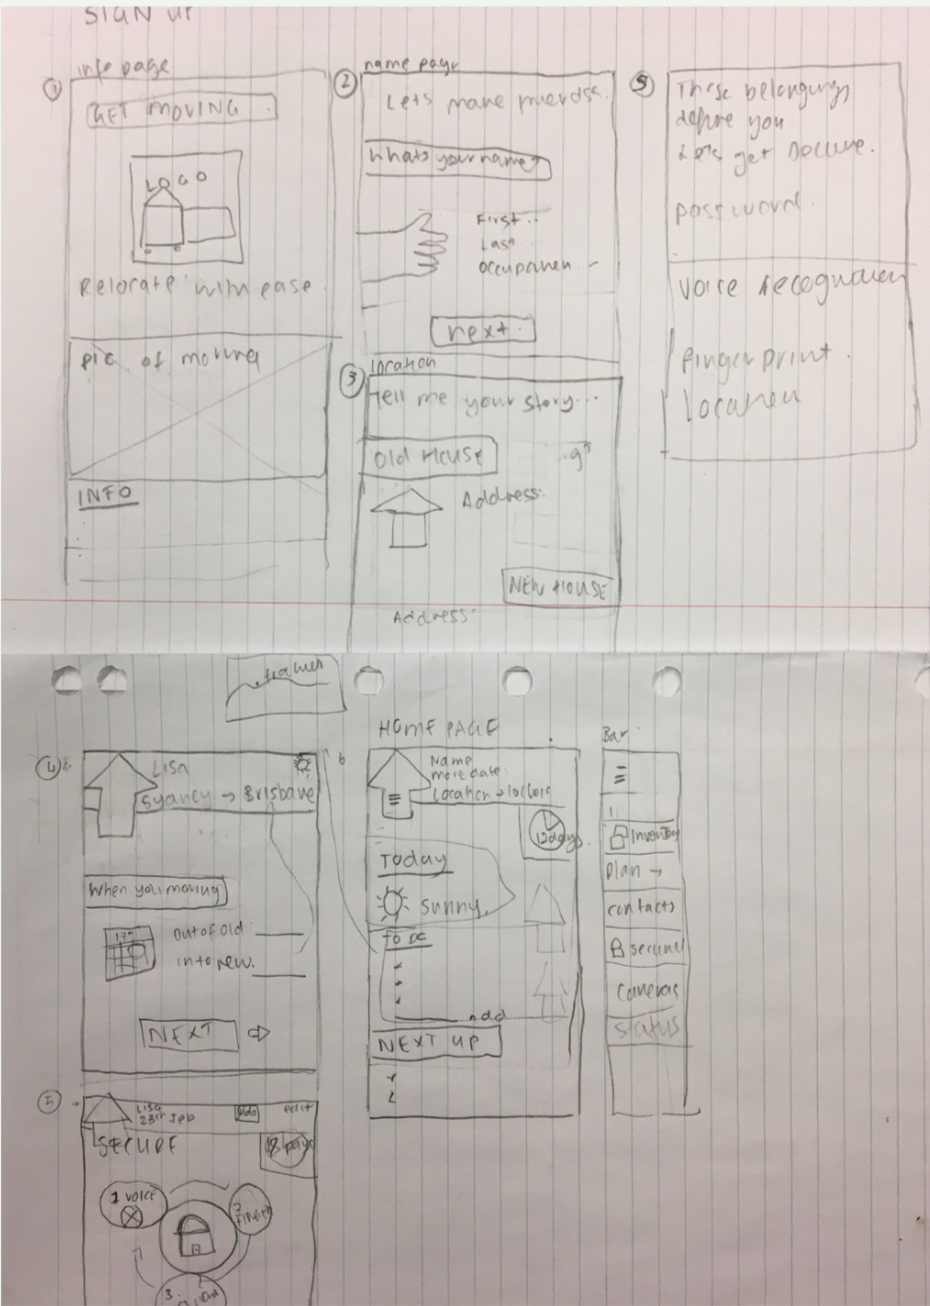 SIGN UP
① info page
GET MOVING
LOGO
Relocate with ease
pic of moving
INFO
② name page
Lets make
Whats your name?
First ..
Last
next.
③ location
Tell me your story...
Old HOUSE
Address.
NEW HOUSE
Address.
⑤ These belongings
define you
Let's get
password.
Voice
fingerprint.
Location
④
Lisa
Sydney → Brisbane
When you moving
17th
out of old:
into new.
NEXT
HOME PAGE
6
Name
Location →
12 days.
Today
Sunny.
To do
add
NEXT UP
Bar
Inventory
Plan →
contacts
Cameras
Status
⑤
Lisa
edit
SECURE
18 Days
1 VOICE
2
3.